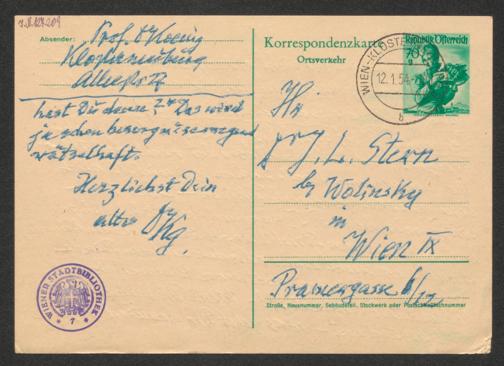 Absender: Prof. O Koenig
Klosterneuburg
hast Du denn? Das wird
ja schon besorgniserregend
rätselhaft.
Herzlichst Dein
alter
Korrespondenzkarte
Ortsverkehr
Republik Österreich
70 g
WIEN-KLOSTE
12.1.54
b
J. L. Stern
bei Wolinsky
in
Wien IX
Pramergasse 6/
Straße, Hausnummer, Gebäudeteil, Stockwerk oder Postschließfachnummer
WIENER STADTBIBLIOTHEK
* 7 *